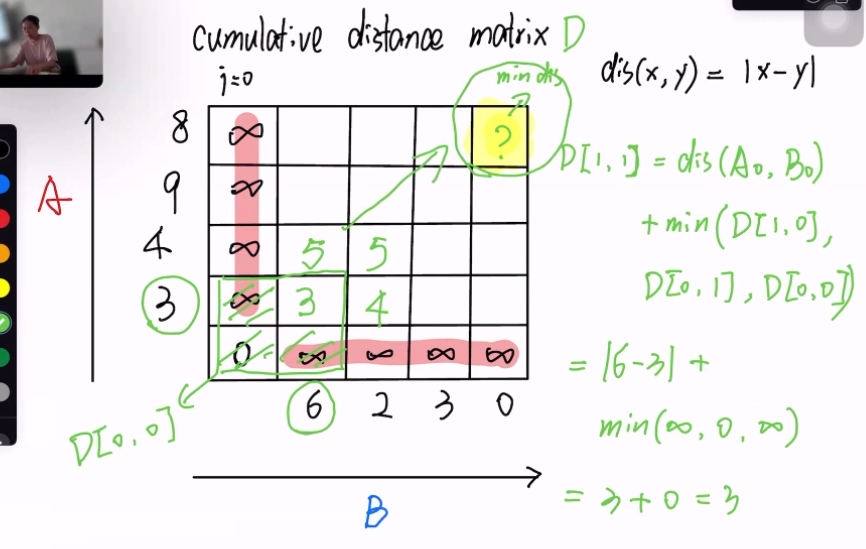 cumulative distance matrix D
j=0
min dis
dis(x, y) = |x-y|
8 ∞ ?
9 ∞
A
4 ∞ 5 5
3 ∞ 3 4
0 ∞ ∞ ∞ ∞
6 2 3 0
D[0,0]
B
D[1,1] = dis(A0, B0)
+ min(D[1,0],
D[0,1], D[0,0])
= |6-3| +
min(∞, 0, ∞)
= 3 + 0 = 3